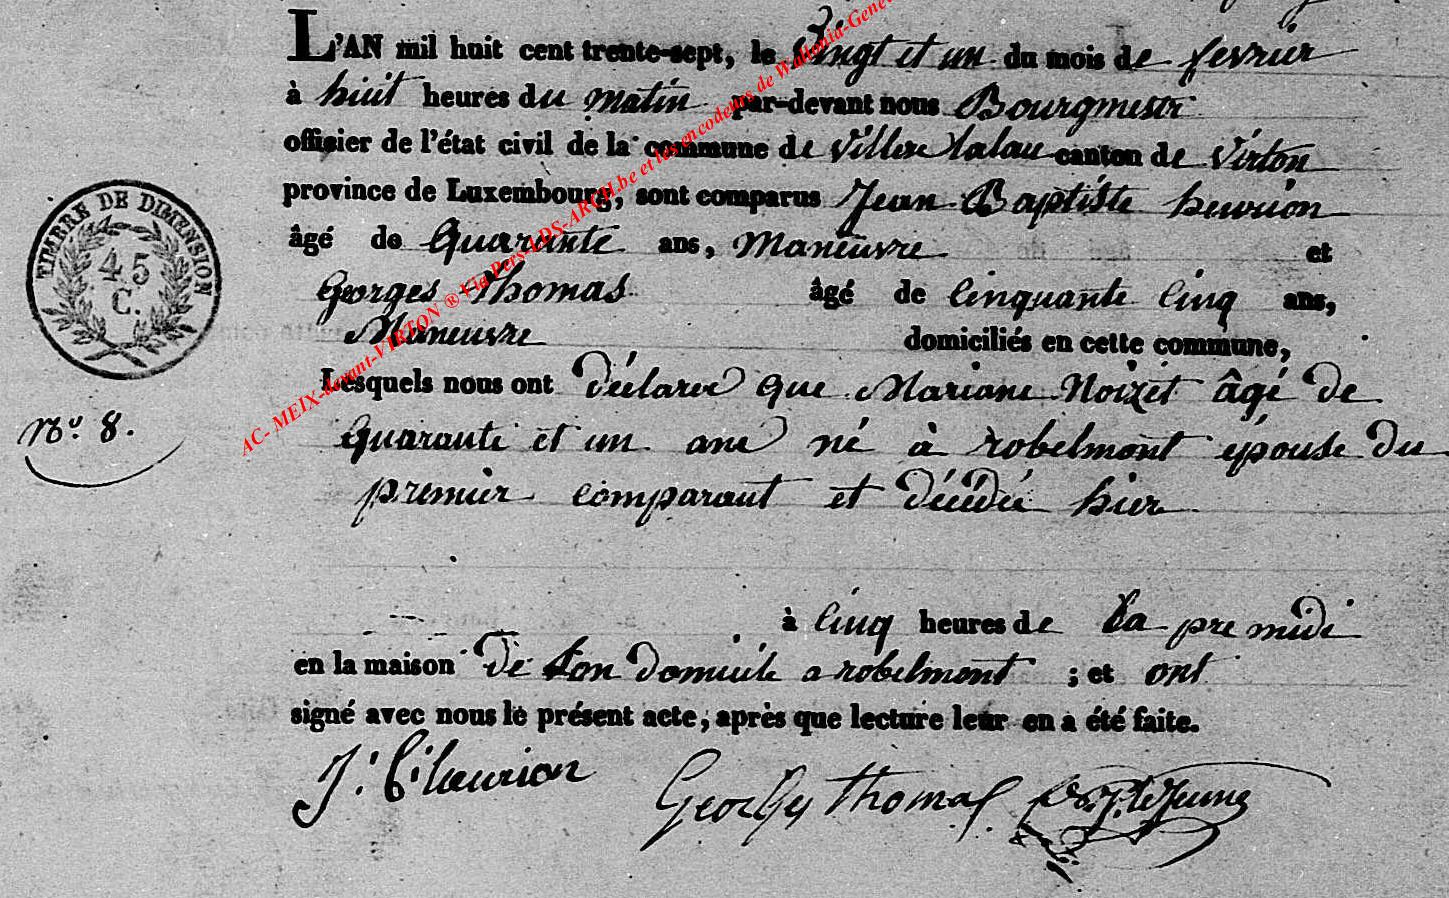 L'AN mil huit cent trente-sept, le Vingt et un du mois de fevrier
à huit heures du matin par-devant nous Bourgmestr
offisier de l'état civil de la commune de Viller laloue canton de Virton
province de Luxembourg, sont comparus Jean Baptiste heurion
âgé de Quarante ans, Maneuvre et
Georges Thomas âgé de Cinquante Cinq ans,
Maneuvre domiciliés en cette commune,
Lesquels nous ont déclaré que Mariane Noizet âgé de
Quarante et un ane né à robelmont epouse du
premier comparant et décédée hier
à Cinq heures de la pre midi
en la maison de son domicile a robelmont ; et ont
signé avec nous le présent acte, après que lecture leur en a été faite.
J. B. heurion Georges Thomas Lejeune
TIMBRE DE DIMENSION
45
C.
No. 8.
AC- MEIX-devant-VIRTON ® Via Pers-LDS-ARCH.be et les encodeurs de Wallonia-Gene